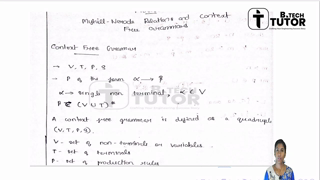 Myhill-Nerode Relations and Context
Free Grammars
B.TECH
TUTOR
Context Free Grammar
→ V, T, P, S
→ P of the form α → β
α → single non terminal, α ∈ V
β ∈ (V ∪ T)*
A context free grammar is defined as a quadruple
(V, T, P, S).
V - set of non-terminals or variables.
T - set of terminals
P - set of production rules